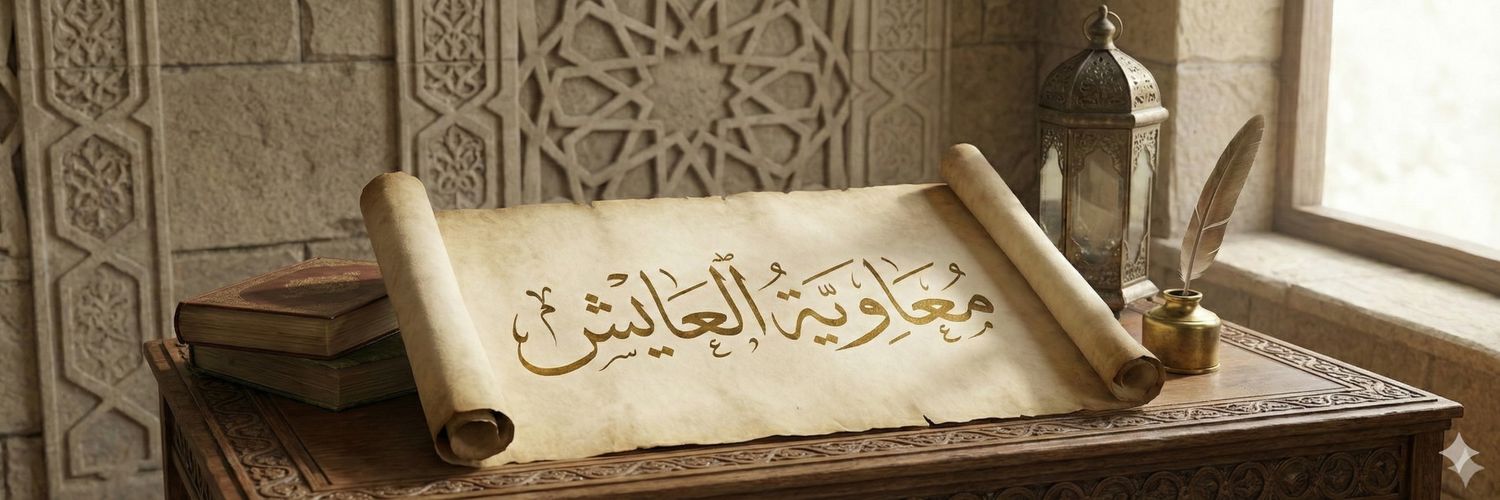 مُعَاوِيَّةُ العَايش